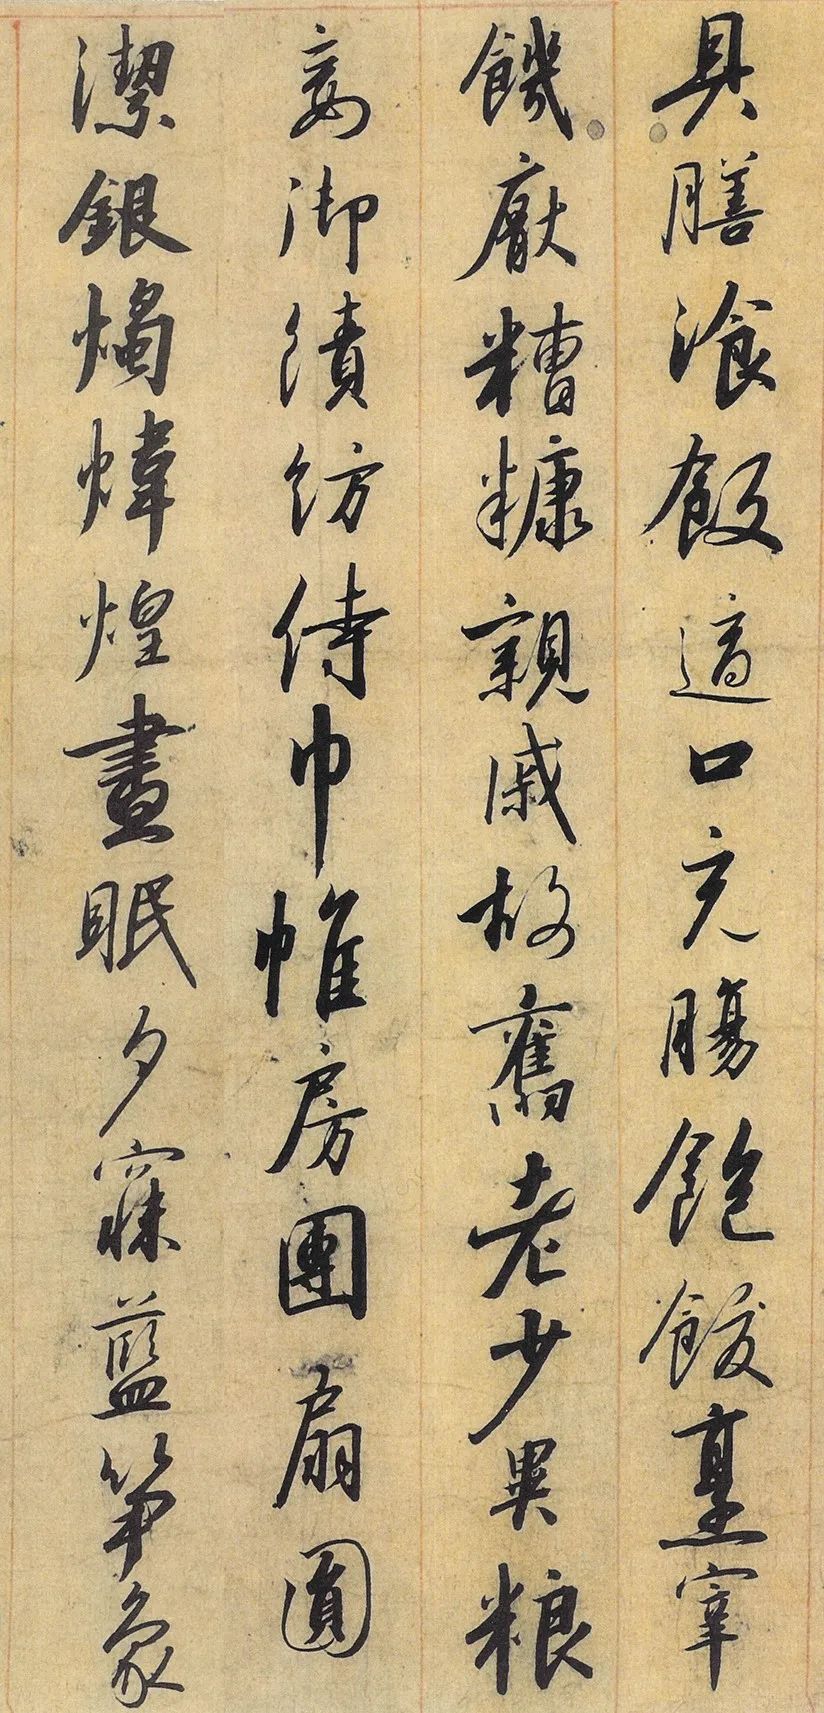 具膳飡飯適口充腸飽飫烹宰
饑厭糟糠親戚故舊老少異粮
妾御績紡侍巾帷房團扇圓
潔銀燭煒煌晝眠夕寐藍笋象